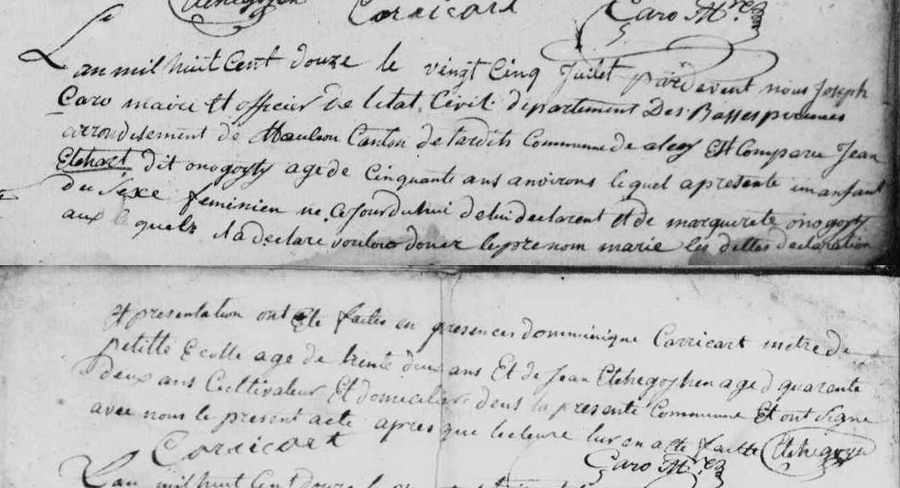 Etchegoyen Carricart Caro M.re
L'an mil huit Cent douze le vingt Cinq Juilet pardevent nous Joseph
Caro maire Et officier de letat Civil departement Des Basses pirenees
arrondisement de Mauleon Canton de tardets Commune de alos Est Comparu Jean
Etchart dit onogoyty age de Cinquante ans anvirons lequel apresente un anfant
du Sexe feminien ne Cejourduhui delui declarent Et de marguerete onogoyty
aux quelz il a declare vouloir doner le prenom marie les dittes declaration
Et presentation ont Ete faites en presences dominique Carricart metre de
petitte Ecolle age de trente deux ans Et de Jean Etchegoyhen age d quarente
deux ans Cultivateur Et domicilies dens la presente Commune Et ont Signe
avec nous le present acte apres que lecteure lur en a Ete faitte Etchegoyen
Carricart Caro M.re
L'an mil huit Cent douze le